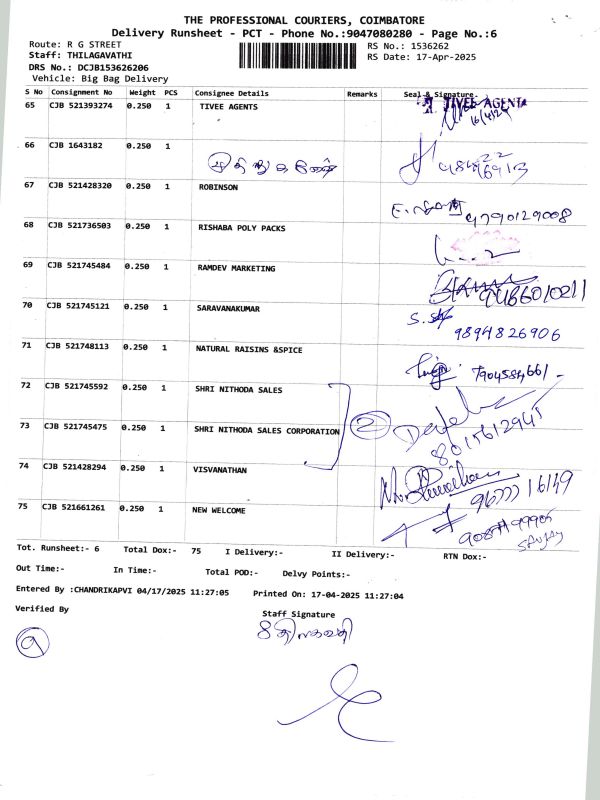 THE PROFESSIONAL COURIERS, COIMBATORE
Delivery Runsheet - PCT - Phone No.:9047080280 - Page No.:6
Route: R G STREET
RS No.: 1536262
Staff: THILAGAVATHI
RS Date: 17-Apr-2025
DRS No.: DCJB153626206
Vehicle: Big Bag Delivery
S No Consignment No Weight PCS Consignee Details Remarks Seal & Signature
65 CJB 521393274 0.250 1 TIVEE AGENTS
TIVEE AGENT
66 CJB 1643182 0.250 1
67 CJB 521428320 0.250 1 ROBINSON
9790129008
68 CJB 521736503 0.250 1 RISHABA POLY PACKS
69 CJB 521745484 0.250 1 RAMDEV MARKETING
70 CJB 521745121 0.250 1 SARAVANAKUMAR
9894826906
71 CJB 521748113 0.250 1 NATURAL RAISINS &SPICE
72 CJB 521745592 0.250 1 SHRI NITHODA SALES
2
73 CJB 521745475 0.250 1 SHRI NITHODA SALES CORPORATION
8015612945
74 CJB 521428294 0.250 1 VISVANATHAN
75 CJB 521661261 0.250 1 NEW WELCOME
SANJAY
Tot. Runsheet:- 6 Total Dox:- 75 I Delivery:- II Delivery:- RTN Dox:-
Out Time:- In Time:- Total POD:- Delvy Points:-
Entered By :CHANDRIKAPVI 04/17/2025 11:27:05 Printed On: 17-04-2025 11:27:04
Verified By Staff Signature
9